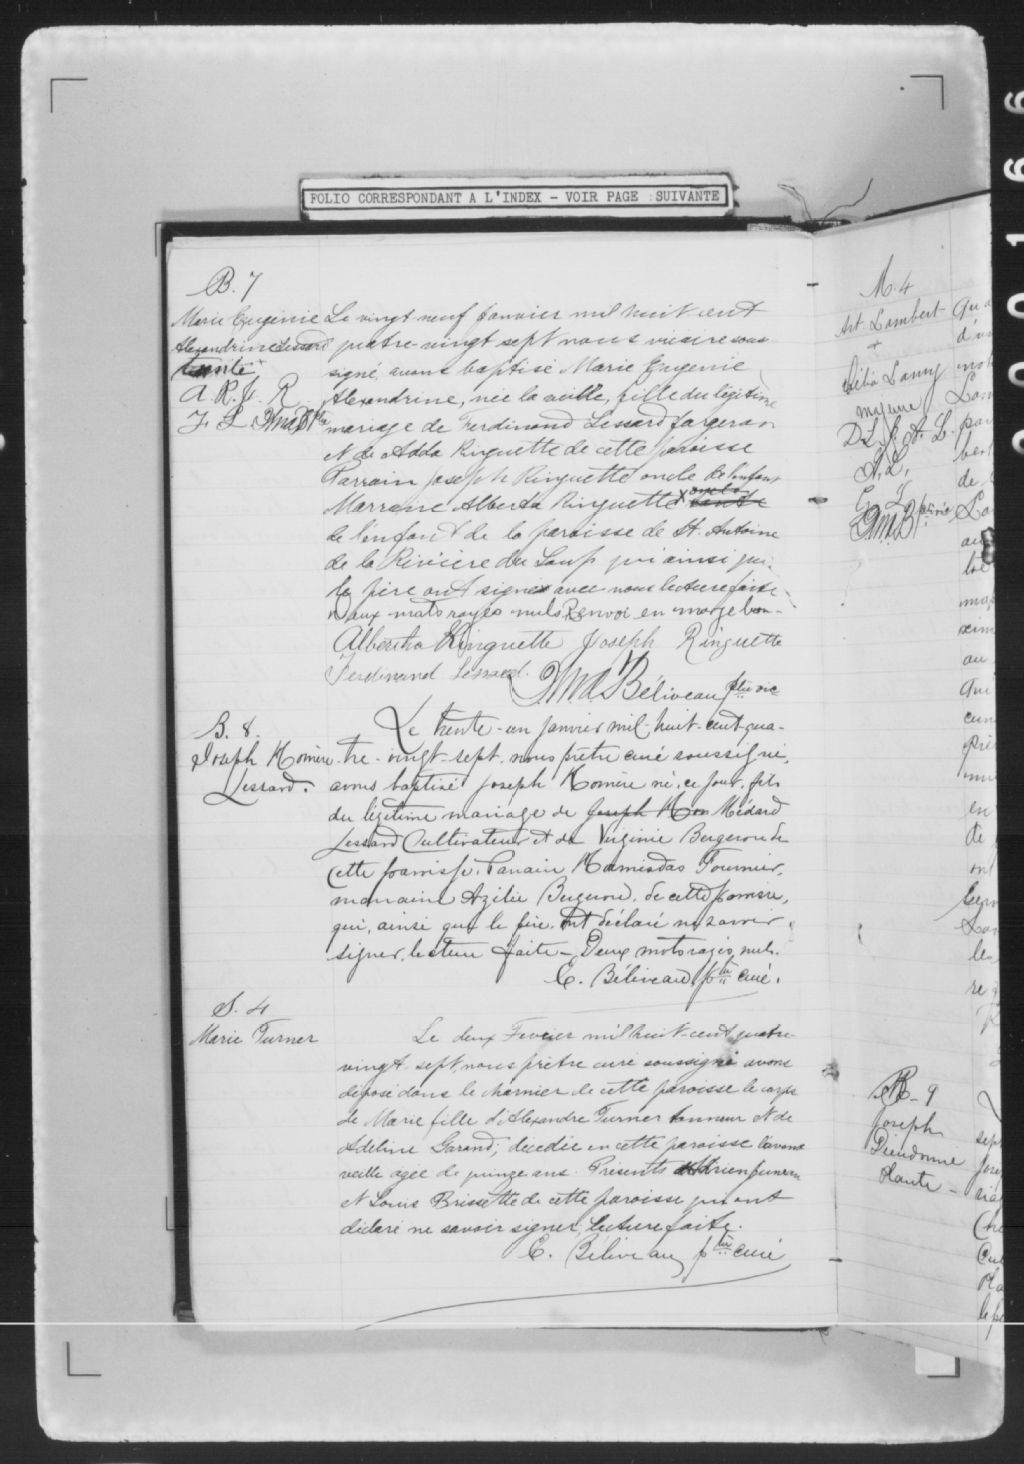 FOLIO CORRESPONDANT A L'INDEX - VOIR PAGE SUIVANTE
B. 7
Marie Eugénie
Alexandrine Lessard
A. R. J. R.
F. L.
Le vingt neuf Janvier mil huit cent
quatre-vingt sept nous vicaire sous-
signé, avons baptisé Marie Eugénie
Alexandrine, née la veille, fille du légitime
mariage de Ferdinand Lessard forgeron
et de Adda Ringuette de cette paroisse
Parrain Joseph Ringuette oncle de l'enfant
Marraine Alberta Ringuette x
de l'enfant de la paroisse de St. Antoine
de la Rivière du Loup qui ainsi que
le père ont signé avec nous lecture faite
Deux mots rayés nuls Renvoi en marge bon-
Albertha Ringuette Joseph Ringuette
Ferdinand Lessard.
Béliveau ptre vic
B. 8.
Joseph Homère
Lessard.
Le trente-un janvier mil-huit-cent-qua-
tre-vingt-sept, nous prêtre curé soussigné,
avons baptisé Joseph Homère né, ce jour, fils
du légitime mariage de Joseph Hom Médard
Lessard Cultivateur et de Virginie Bergeron de
cette paroisse. Parrain Hormisdas Fournier,
marraine Azilie Bergeron, de cette paroisse,
qui, ainsi que le père, ont déclaré ne savoir
signer, lecture faite - Deux mots rayés nuls.
E. Béliveau ptre curé.
S. 4
Marie Turner
Le deux Fevrier mil huit-cent quatre
vingt-sept, nous prêtre curé soussigné avons
déposé dans le charnier de cette paroisse le corps
de Marie fille d'Alexandre Turner tanneur et de
Adeline Garand, décédée en cette paroisse l'avant
veille agée de quinze ans. Présents
et Louis Brissette de cette paroisse qui ont
déclaré ne savoir signer, lecture faite.
E. Béliveau ptre curé
M 4
Art. Lambert
+
Lamy
majeure
D. L. J. A. L.
A. L.
B. 9
Joseph
Dieudonné
Plante -